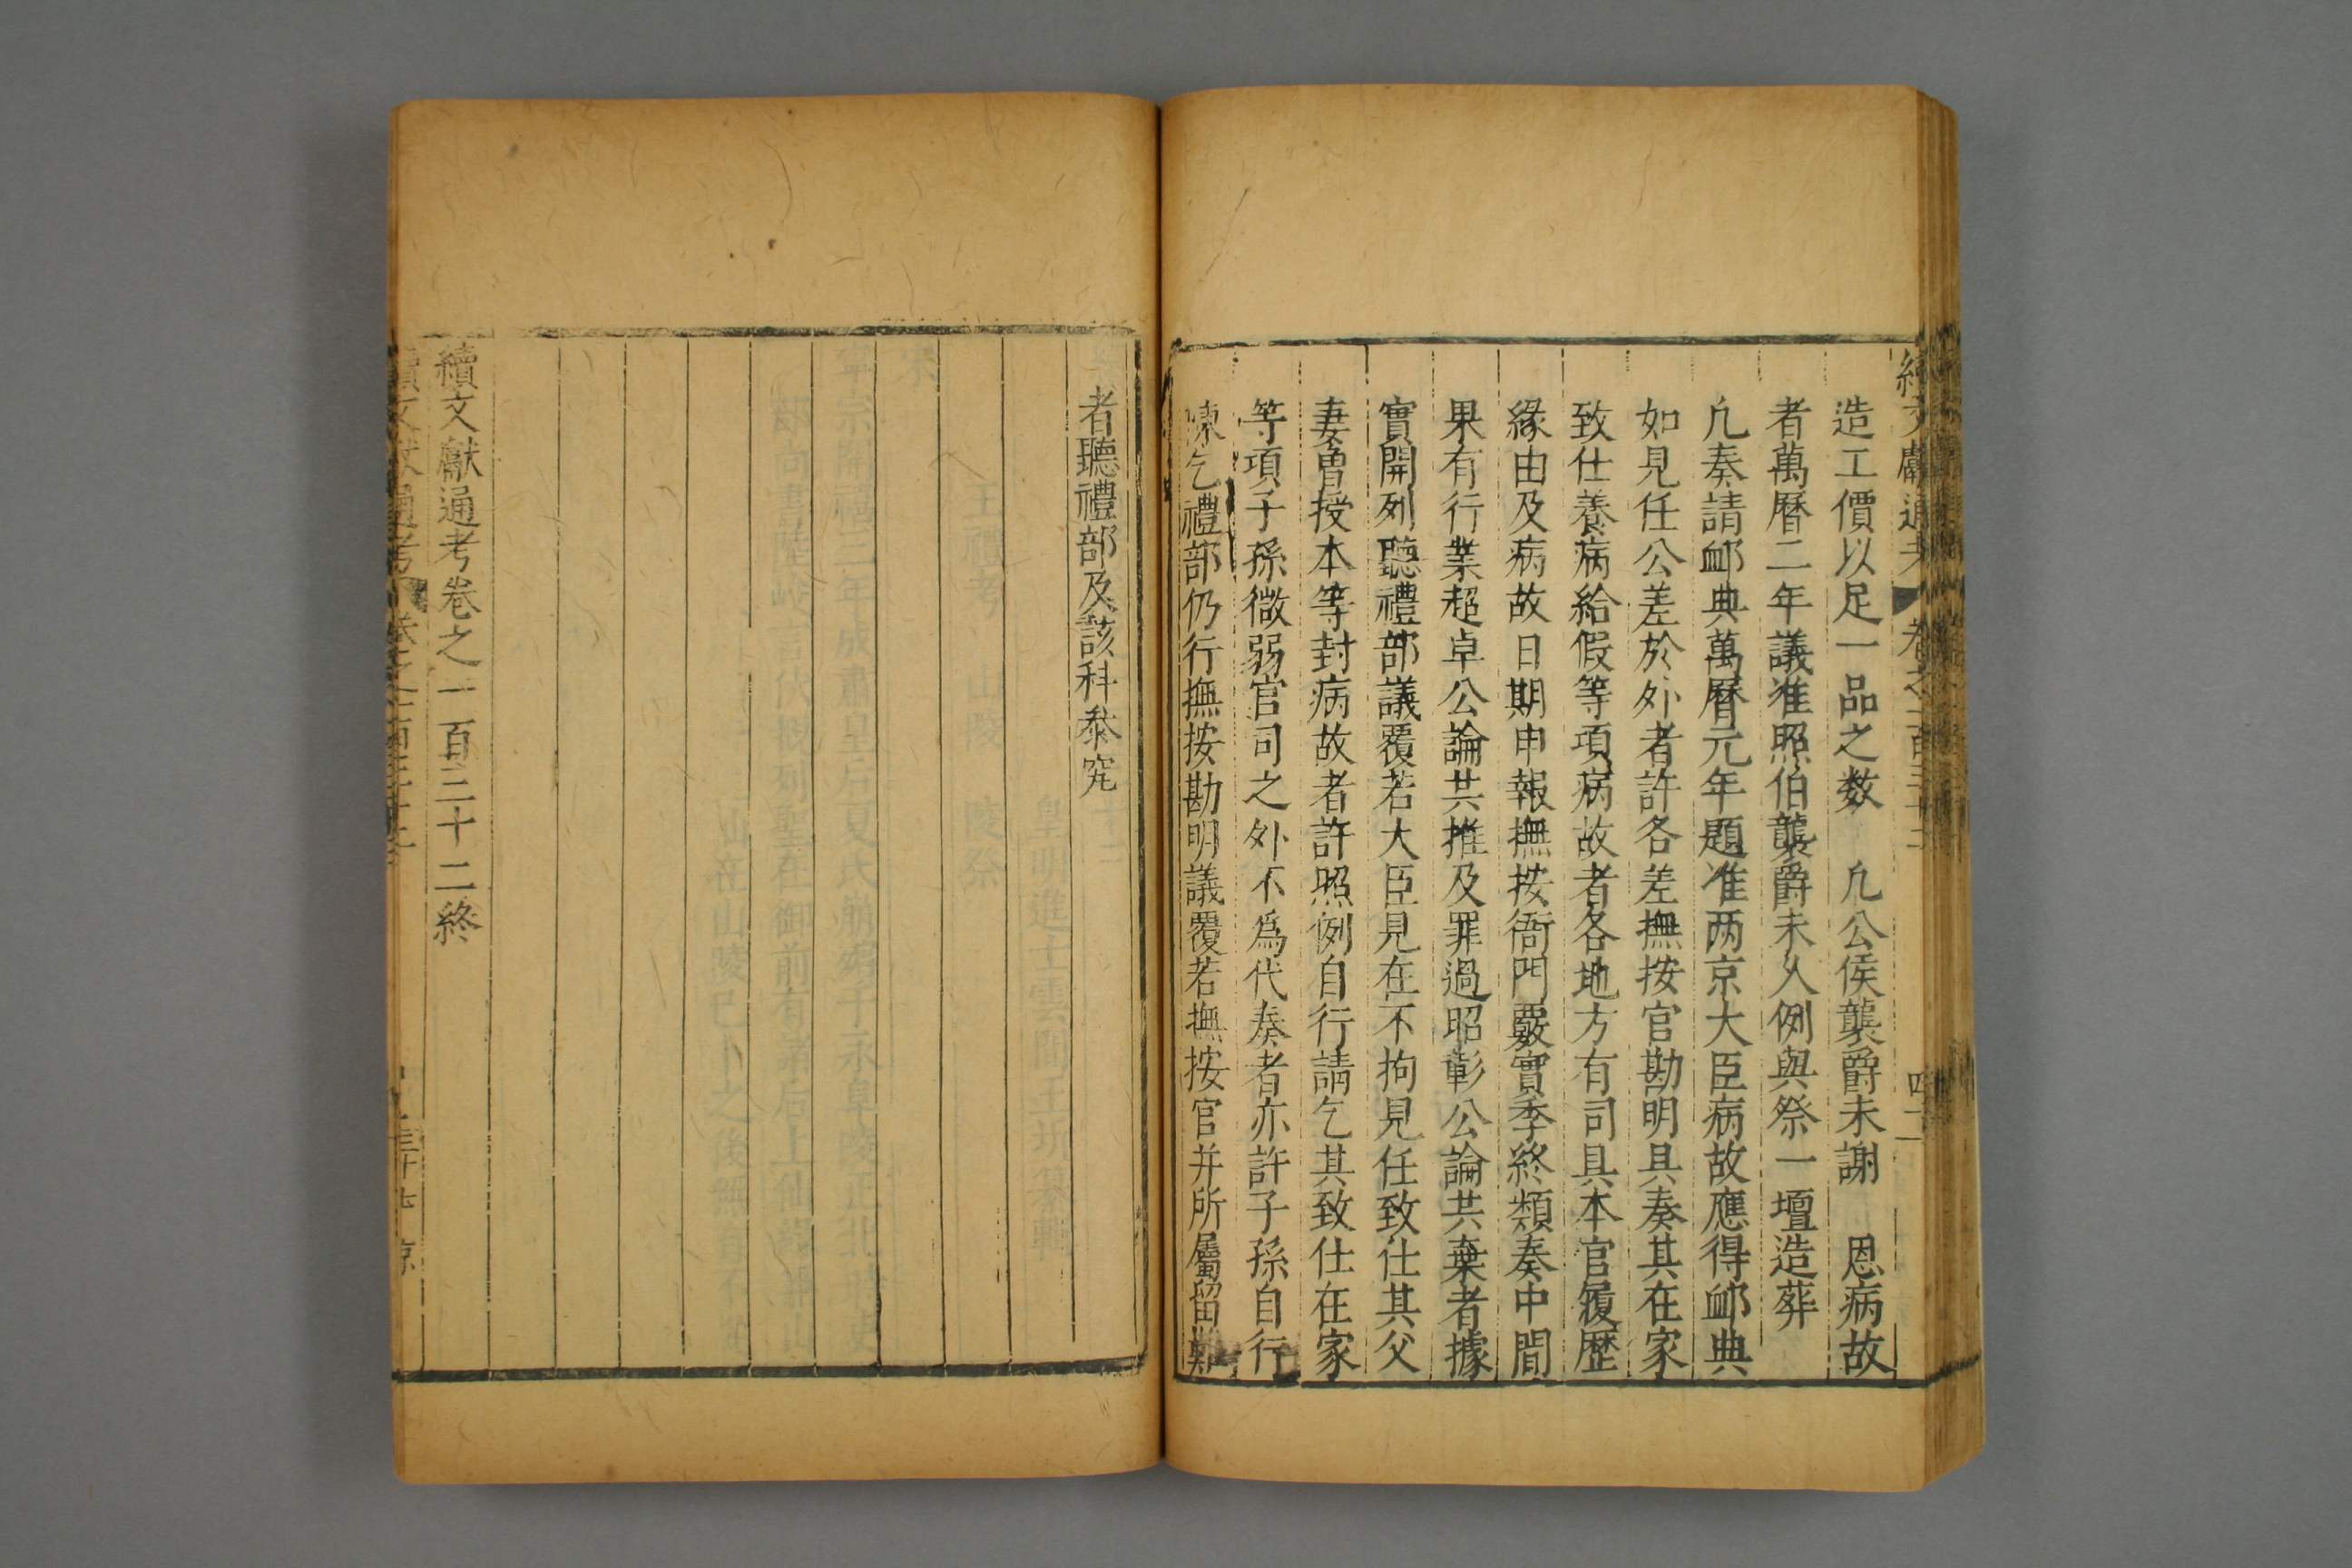 造工價以足一品之数　凢公侯襲爵未謝　恩病故
者萬曆二年議准照伯襲爵未久例與祭一壇造葬
凢奏請衈典萬曆元年題准两京大臣病故應得衈典
如見任公差於外者許各差撫按官勘明具奏其在家
致仕養病給假等項病故者各地方有司具本官履歷
緣由及病故日期申報撫按衙門覈實季終類奏中間
果有行業超卓公論共推及罪過昭彰公論共棄者據
實開列聽禮部議覆若大臣見在不拘見任致仕其父
妻曽授本等封病故者許照例自行請乞其致仕在家
等項子孫微弱官司之外不爲代奏者亦許子孫自行
陳乞禮部仍行撫按勘明議覆若撫按官并所屬留難
者聽禮部及該科叅究
續文獻通考卷之一百三十二終